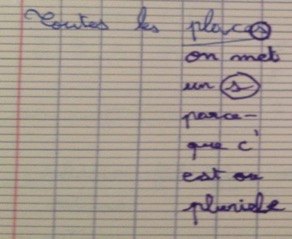 Toutes les places
on met
un s
parce-
que c'
est au
pluriele